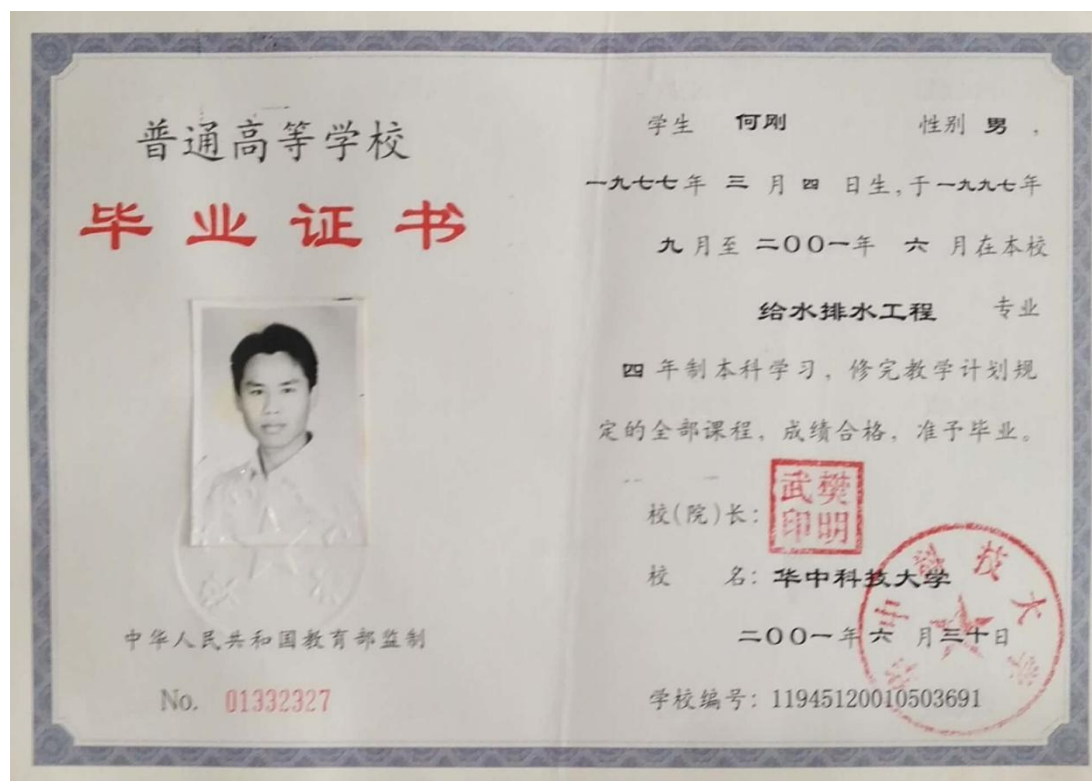 普通高等学校
毕业证书
中华人民共和国教育部监制
No. 01332327
学生 何刚 性别 男 ,
一九七七年 三 月 四 日生,于一九九七年
九 月至 二〇〇一年 六 月在本校
给水排水工程 专业
四 年制本科学习, 修完教学计划规
定的全部课程, 成绩合格, 准予毕业。
校(院)长:
樊明武印
校 名: 华中科技大学
二〇〇一年 六 月三十日
华中科技大学
学校编号: 11945120010503691